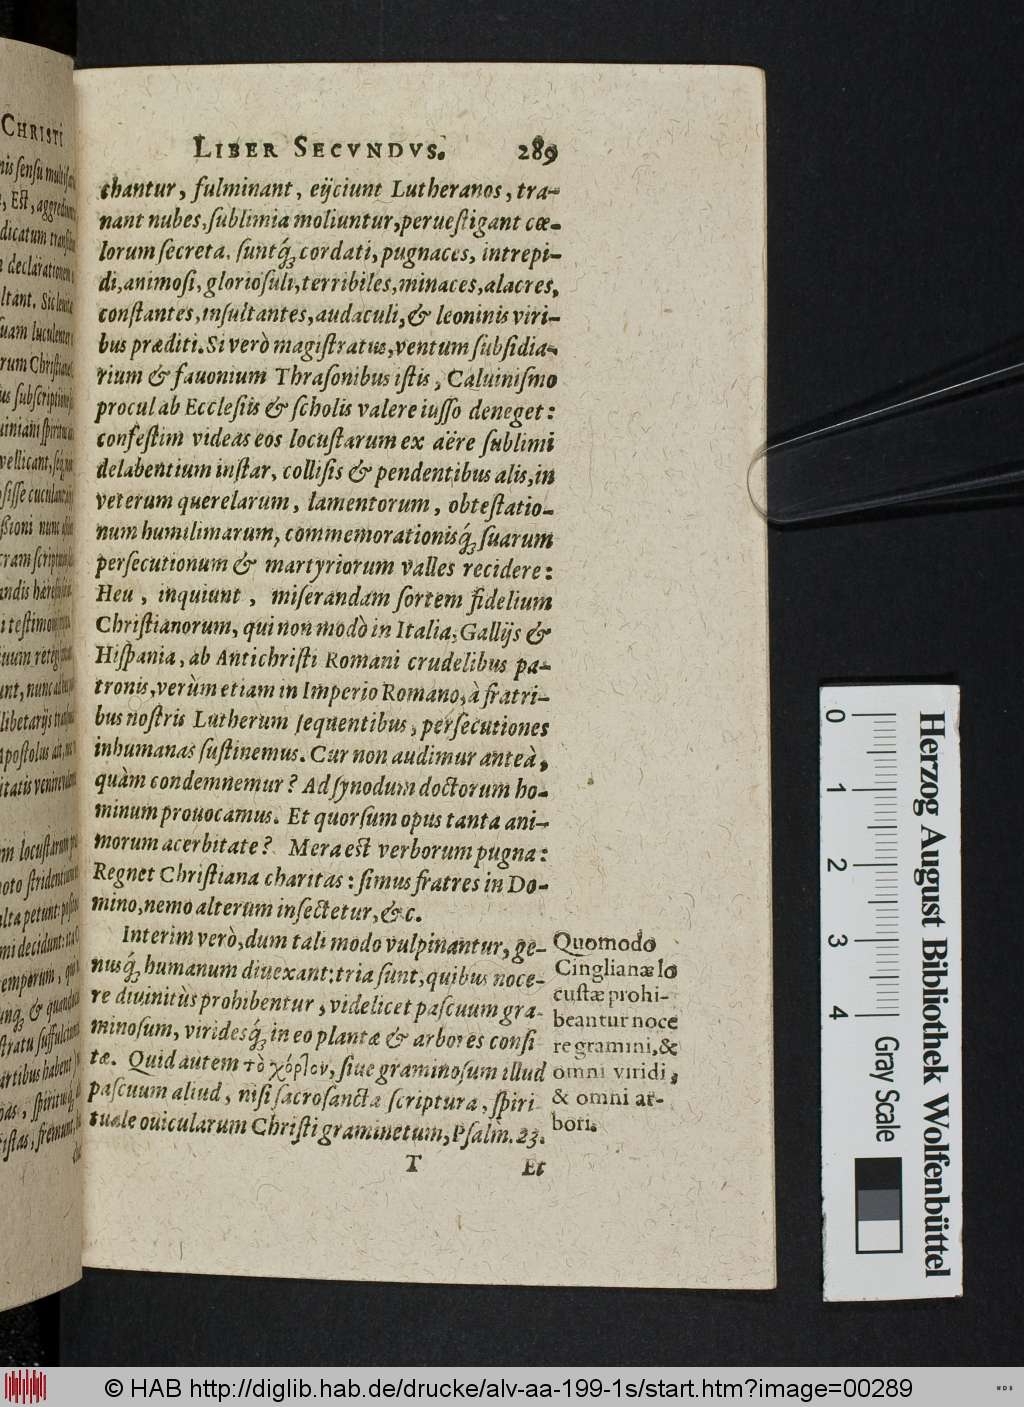 LIBER SECVNDVS. 289
chantur, fulminant, eijciunt Lutheranos, tra-
nant nubes, sublimia moliuntur, peruestigant cœ-
lorum secreta, suntq́; cordati, pugnaces, intrepi-
di, animosi, gloriosuli, terribiles, minaces, alacres,
constantes, insultantes, audaculi, & leoninis viri-
bus præditi. Si verò magistratus, ventum subsidia-
rium & fauonium Thrasonibus istis, Caluinismo
procul ab Ecclesiis & scholis valere iusso deneget:
confestim videas eos locustarum ex aëre sublimi
delabentium instar, collisis & pendentibus alis, in
veterum querelarum, lamentorum, obtestatio-
num humilimarum, commemorationisq́; suarum
persecutionum & martyriorum valles recidere:
Heu, inquiunt, miserandam sortem fidelium
Christianorum, qui non modò in Italia, Gallijs &
Hispania, ab Antichristi Romani crudelibus pa-
tronis, verùm etiam in Imperio Romano, à fratri-
bus nostris Lutherum sequentibus, persecutiones
inhumanas sustinemus. Cur non audimur anteà,
quàm condemnemur? Ad synodum doctorum ho-
minum prouocamus. Et quorsum opus tanta ani-
morum acerbitate? Mera est verborum pugna:
Regnet Christiana charitas: simus fratres in Do-
mino, nemo alterum insectetur, &c.
Interim verò, dum tali modo vulpinantur, ge-
nusq́; humanum diuexant: tria sunt, quibus noce-
re diuinitùs prohibentur, videlicet pascuum gra-
minosum, viridesq́; in eo plantæ & arbores consi
tæ. Quid autem τὸ χόρτον, siue graminosum illud
pascuum aliud, nisi sacrosancta scriptura, spiri
tuale ouicularum Christi graminetum, Psalm. 23.
T Et
Quomodo
Cinglianæ lo
custæ prohi-
beantur noce
re gramini, &
omni viridi,
& omni ar-
bori.
CHRISTI
Herzog August Bibliothek Wolfenbüttel
0 1 2 3 4 Gray Scale
© HAB http://diglib.hab.de/drucke/alv-aa-199-1s/start.htm?image=00289